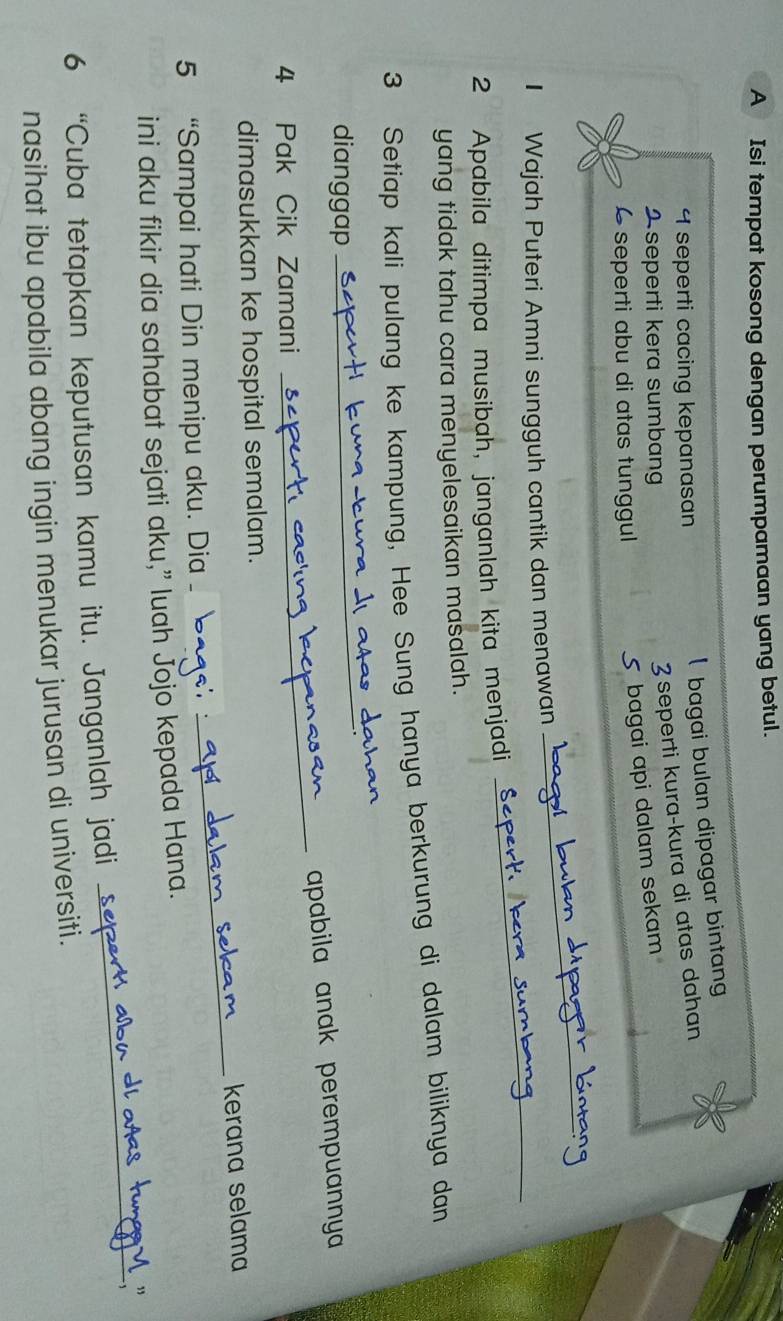 A Isi tempat kosong dengan perumpamaan yang betul.
4 seperti cacing kepanasan
1 bagai bulan dipagar bintang
2 seperti kera sumbang
3 seperti kura-kura di atas dahan
6 seperti abu di atas tunggul
5 bagai api dalam sekam
1 Wajah Puteri Amni sungguh cantik dan menawan bagai bulan dipagar bintang.
2 Apabila ditimpa musibah, janganlah kita menjadi seperti kera sumbang
yang tidak tahu cara menyelesaikan masalah.
3 Setiap kali pulang ke kampung, Hee Sung hanya berkurung di dalam biliknya dan
dianggap seperti kura-kura di atas dahan.
4 Pak Cik Zamani seperti cacing kepanasan apabila anak perempuannya
dimasukkan ke hospital semalam.
5 “Sampai hati Din menipu aku. Dia bagai api dalam sekam kerana selama
ini aku fikir dia sahabat sejati aku,” luah Jojo kepada Hana.
6 “Cuba tetapkan keputusan kamu itu. Janganlah jadi seperti abu di atas tunggul,”
nasihat ibu apabila abang ingin menukar jurusan di universiti.